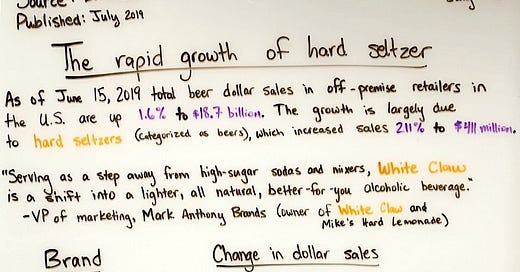 Published: July 2019
The rapid growth of hard seltzer
As of June 15, 2019 total beer dollar sales in off-premise retailers in
the U.S. are up 1.6% to $18.7 billion. The growth is largely due
to hard seltzers (categorized as beers), which increased sales 211% to $411 million.
"Serving as a step away from high-sugar sodas and mixers, White Claw
is a shift into a lighter, all natural, better-for-you alcoholic beverage."
-VP of marketing, Mark Anthony Brands (owner of White Claw and
Mike's Hard Lemonade)
Brand Change in dollar sales